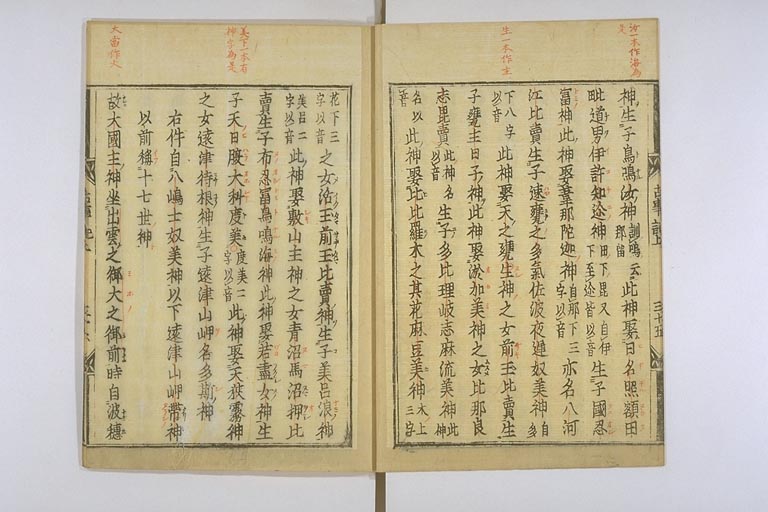 汝一本作海為是
生一本作主
神生子鳥鳴汝神訓鳴云那留此神娶日名照額田
毗道男伊許知迩神田下毘又自伊下至迩皆以音生子國忍
富神此神娶葦那陀迦神自那下三字以音亦名八河
江比賣生子速甕之多氣佐波夜遲奴美神自多
下八字以音此神娶天之甕生神之女前玉比賣生
子甕主日子神此神娶淤加美神之女比那良
志毘賣此神名以音生子多比理岐志麻流美神此神
名以音此神娶比比羅木之其花麻豆美神木上三字
古事記上
三十五
美下一本有神字為是
太當作大
花下三字以音之女活玉前玉比賣神生子美呂浪神
美呂二字以音此神娶敷山主神之女青沼馬沼押比
賣生子布忍富鳥鳴海神此神娶若盡女神生
子天日腹大科度美度美二字以音此神娶天狹霧神
之女遠津待根神生子遠津山岬名多斯神
右件自八嶋士奴美神以下遠津山岬帶神
以前稱十七世神
故太國主神坐出雲之御大之御前時自波穗